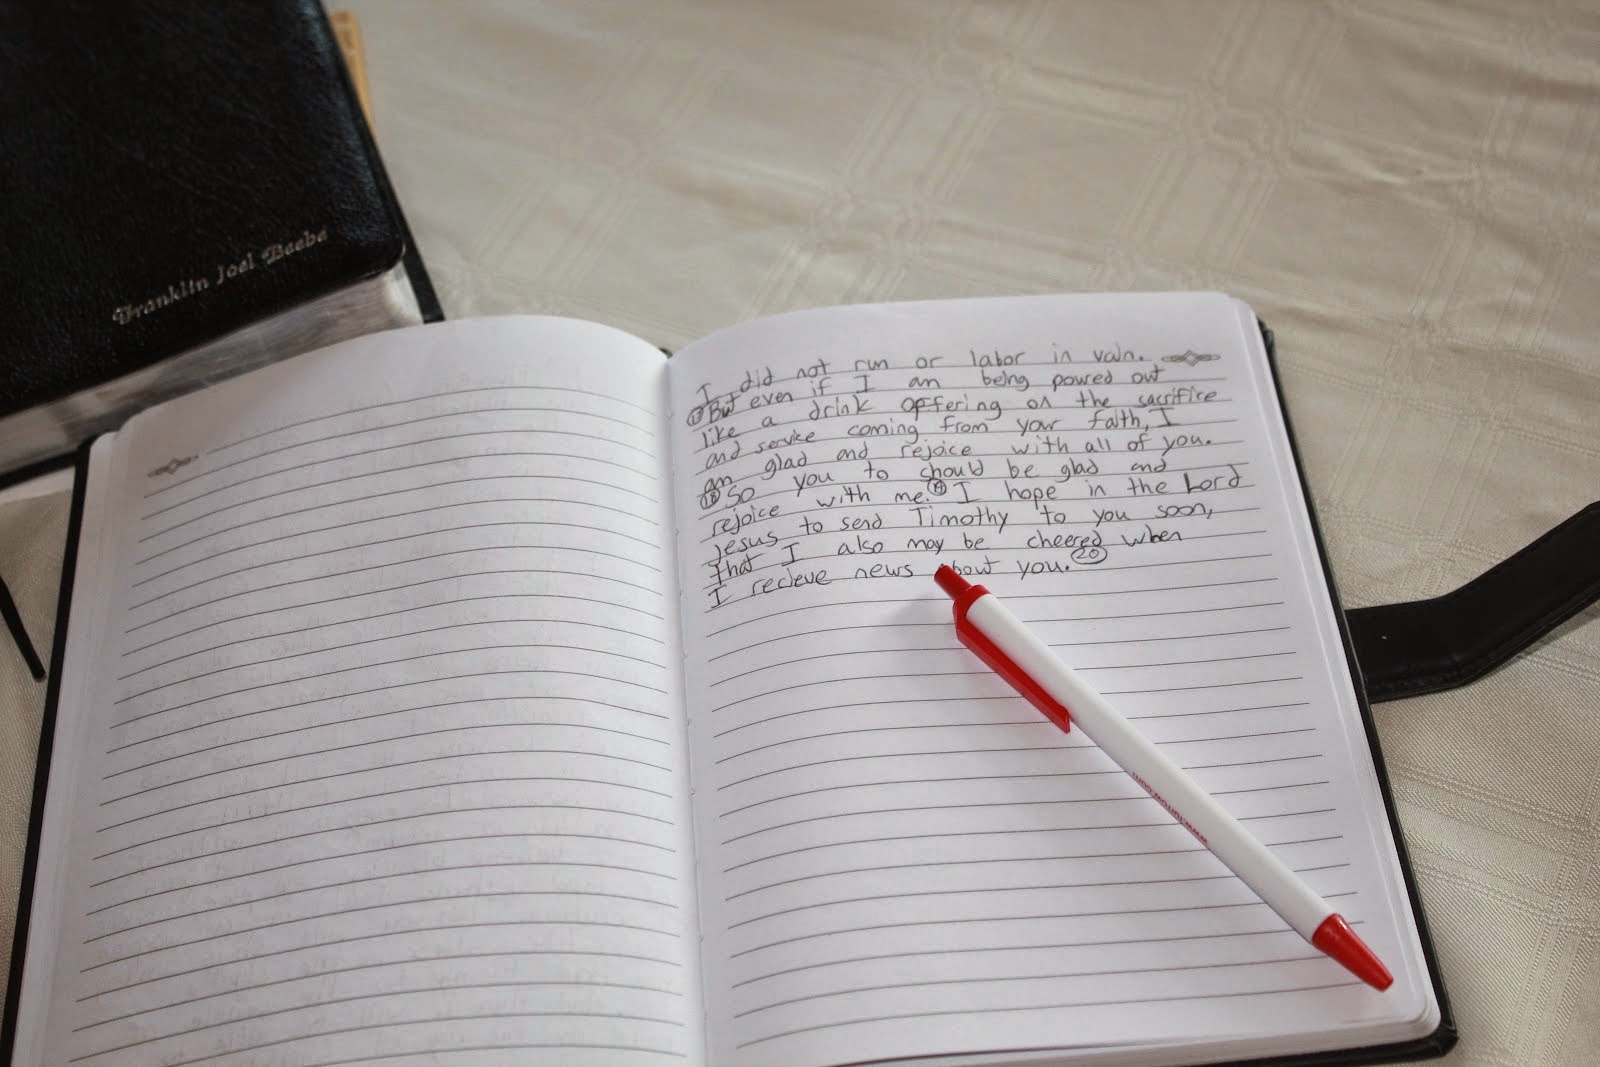 Franklin Joel Beebe
I did not run or labor in vain.
⑰ But even if I am being poured out
like a drink offering on the sacrifice
and service coming from your faith, I
am glad and rejoice with all of you.
⑱ So you to should be glad and
rejoice with me. ⑲ I hope in the Lord
Jesus to send Timothy to you soon,
that I also may be cheered when
I recieve news about you. ⑳
www.furrow.com